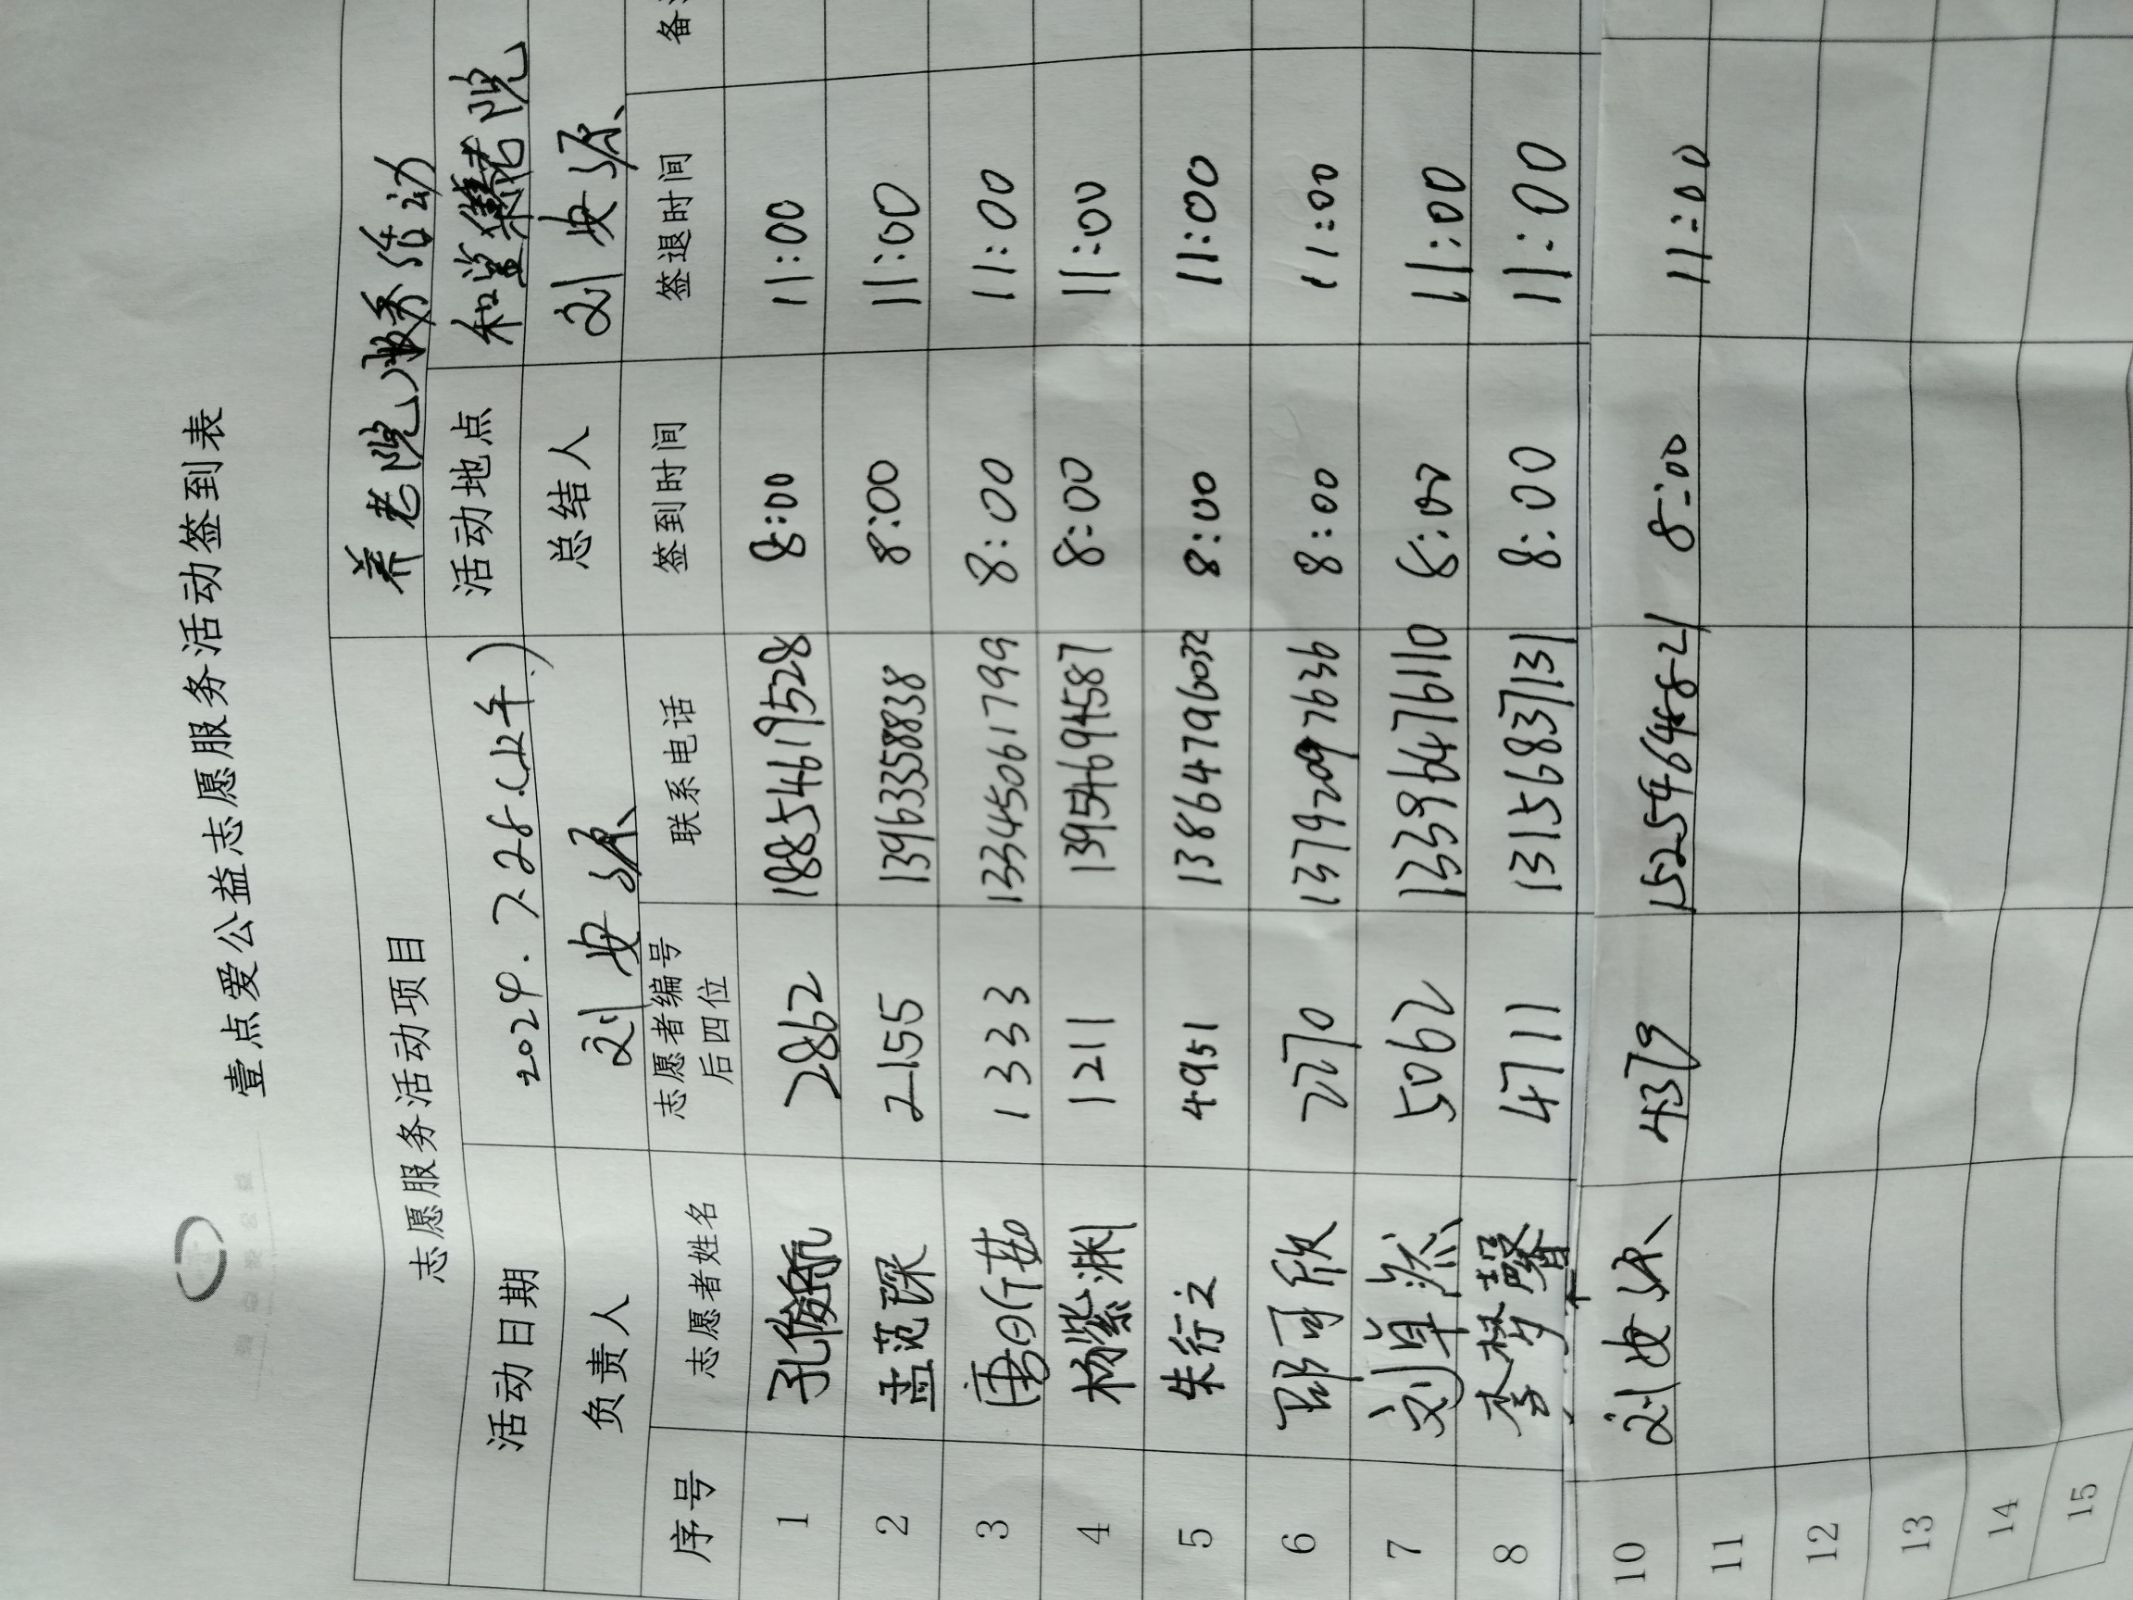 壹点爱公益志愿服务活动签到表
志愿服务活动项目 养老院服务活动
活动日期 2024.7.28.(上午.) 活动地点 和堂养老院
负责人 刘安源 总结人 刘安源
序号 志愿者姓名 志愿者编号后四位 联系电话 签到时间 签退时间
1 孔俊航 2862 18854619528 8:00 11:00
2 孟范琛 2155 13963358838 8:00 11:00
3 1333 13345061799 8:00 11:00
4 杨紫渊 1211 13954694587 8:00 11:00
5 朱行之 4951 13864796032 8:00 11:00
6 邵可欣 2270 13792097636 8:00 11:00
7 刘卓然 5062 13396476110 8:00 11:00
8 李梦馨 4711 13156837131 8:00 11:00
10 刘安源 4379 15254648821 8:00 11:00
11
12
13
14
15